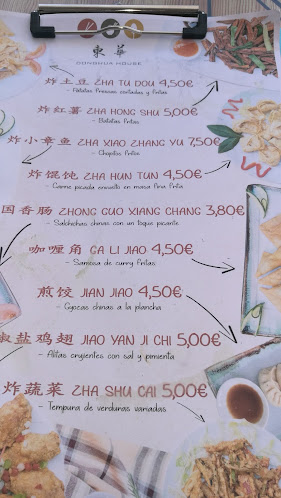 東華
DONGHUA HOUSE
炸土豆 ZHA TU DOU 4,50€
- Patatas frescas cortadas y fritas
炸红薯 ZHA HONG SHU 5,00€
- Batatas fritas
炸小章鱼 ZHA XIAO ZHANG YU 7,50€
- Chopitos fritos
炸馄饨 ZHA HUN TUN 4,50€
- Carne picada envuelto en masa fina frita
国香肠 ZHONG GUO XIANG CHANG 3,80€
- Salchichas chinas con un toque picante
咖喱角 GA LI JIAO 4,50€
- Samosa de curry fritas
煎饺 JIAN JIAO 4,50€
- Gyozas chinas a la plancha
椒盐鸡翅 JIAO YAN JI CHI 5,00€
- Alitas crujientes con sal y pimienta
炸蔬菜 ZHA SHU CAI 5,00€
- Tempura de verduras variadas